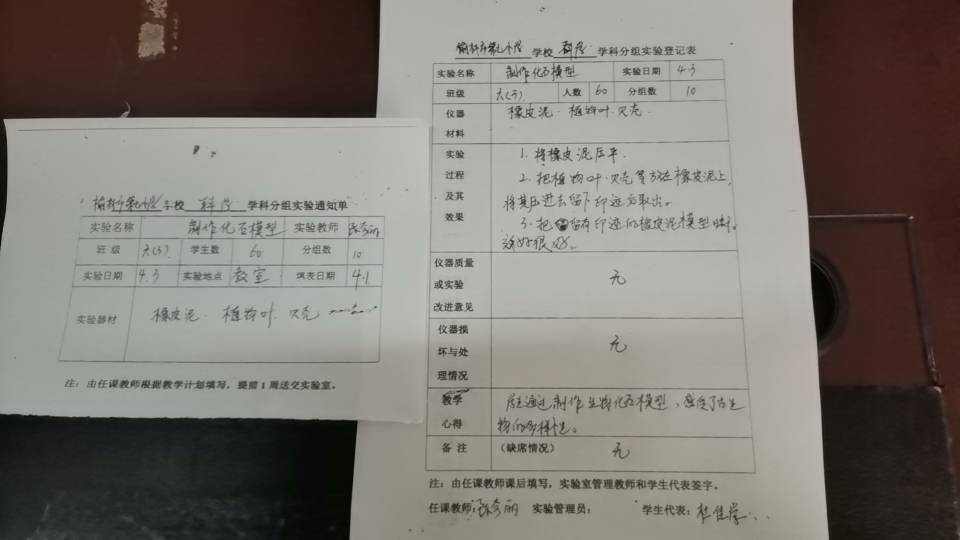 学校 科学 学科分组实验通知单
实验名称 制作化石模型 实验教师
班 级 六(3). 学生数 60 分组数 10
实验日期 4.3 实验地点 教室 填表日期 4.1
实验器材 橡皮泥. 植物叶. 贝壳
注：由任课教师根据教学计划填写，提前1周送交实验室。
学校 科学 学科分组实验登记表
实验名称 制作化石模型 实验日期 4.3
班级 六(3). 人数 60 分组数 10
仪器 橡皮泥. 植物叶. 贝壳.
材料
实验 1. 将橡皮泥压平.
过程 2. 把植物叶.贝壳等放在橡皮泥上,
及其 将其压进去留下印迹后取出。
效果 3. 把留有印迹的橡皮泥模型晾干。
效果很好。
仪器质量
或实验 无
改进意见
仪器损
坏与处 无
理情况
教学 学生通过制作生物化石模型，感受了古生
心得 物的多样性。
备 注 （缺席情况） 无
注：由任课教师课后填写，实验室管理教师和学生代表签字。
任课教师： 实验管理员： 学生代表：